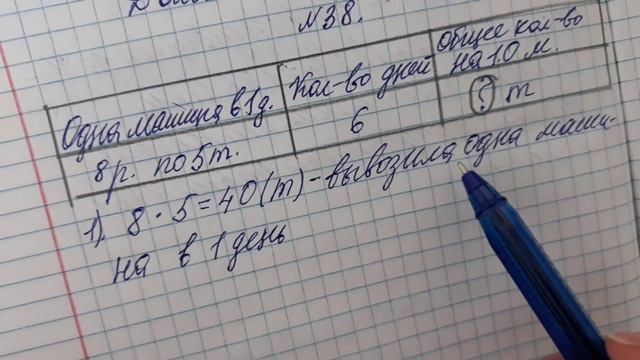 №38.
Одна машина в 1д.
Кол-во дней
Общее кол-во
на 10 м.
8р. по 5т.
6
? т
1). 8 · 5 = 40 (т) - вывозила одна маши-
на в 1 день